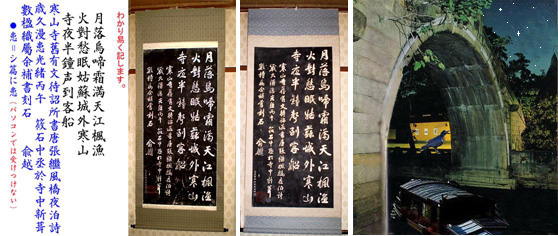 わかり易く記します。
月落烏啼霜満天江楓漁
火對愁眠姑蘇城外寒山
寺夜半鐘声到客船
寒山寺舊有文待詔所書唐張繼風橋夜泊詩
歳久漫患光緒丙午 筱石中丞於寺中新葺
數楹織属余補書刻石 兪越
●患=シ扁に患(パソコンでは受けつけない)
月落烏啼霜満天江楓漁
火對愁眠姑蘇城外寒山
寺夜半鐘声到客船
月落烏啼霜満天江楓漁
火對愁眠姑蘇城外寒山
寺夜半鐘声到客船